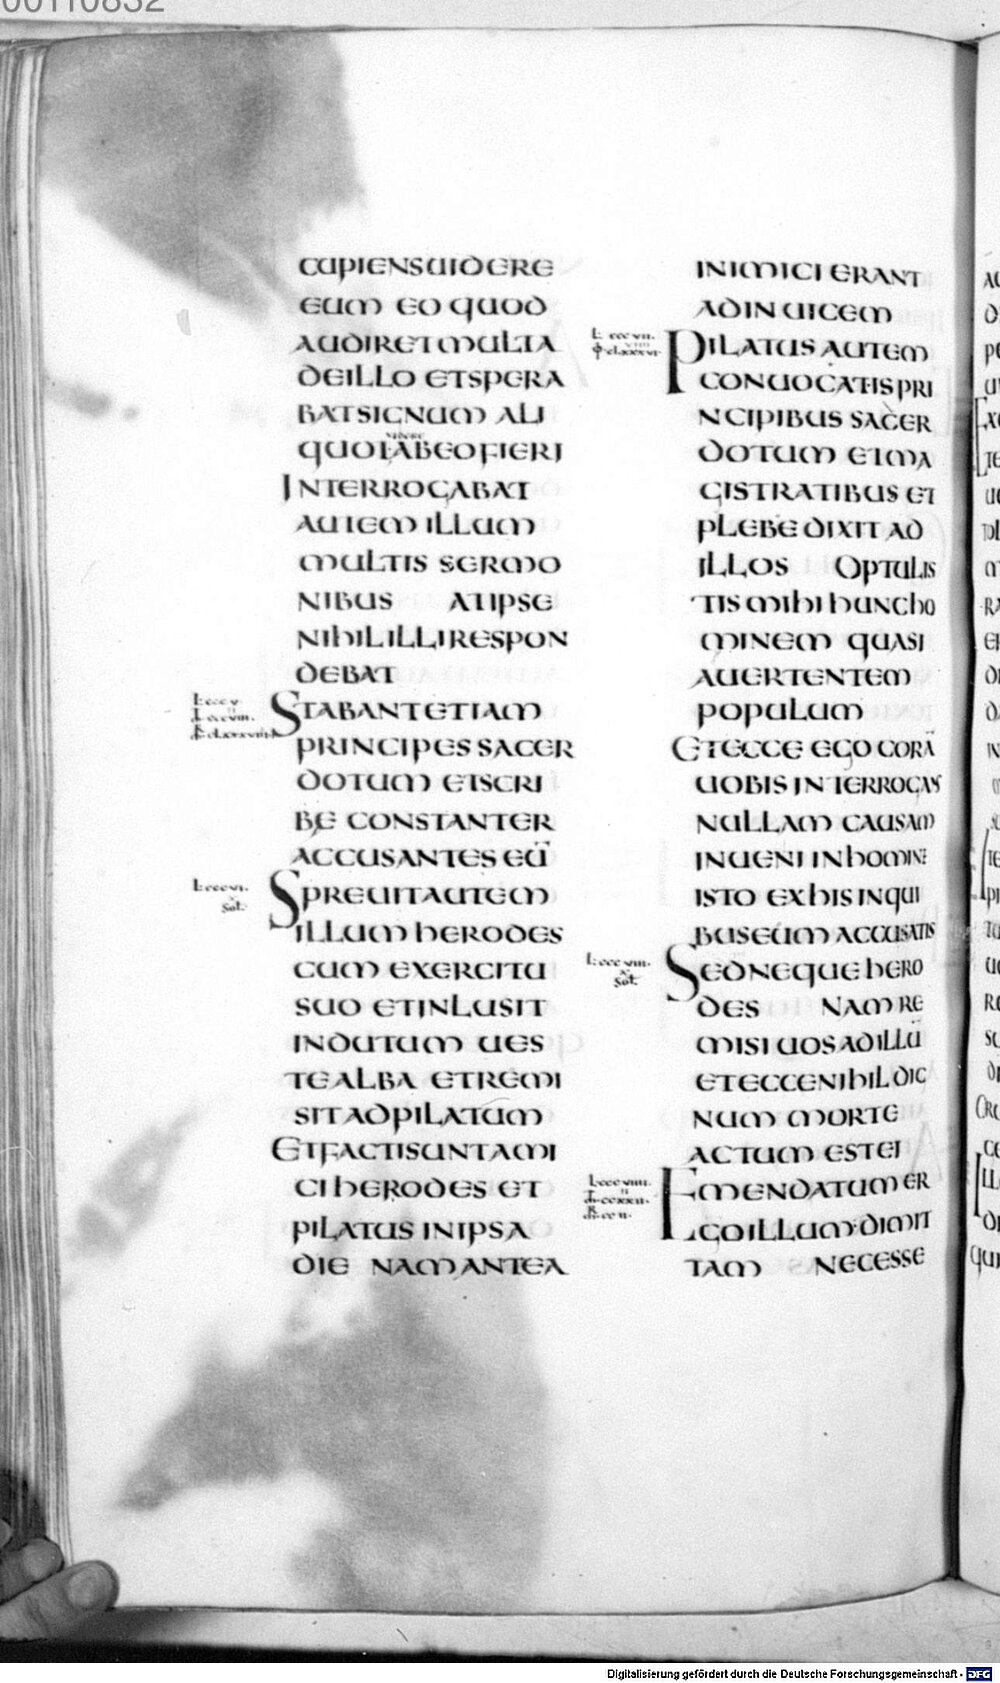 CUPIENSUIDERE
EUM EO QUOD
AUDIRETMULTA
DEILLO ETSPERA
BATSIGNUM ALI
QUOTABEOFIERI
INTERROGABAT
AUTEMILLUM
MULTIS SERMO
NIBUS ATIPSE
NIHILILLIRESPON
DEBAT
STABANTETIAM
PRINCIPESSACER
DOTUM ETSCRI
BE CONSTANTER
ACCUSANTES EŪ
SPREUITAUTEM
ILLUM HERODES
CUM EXERCITU
SUO ETINLUSIT
INDUTUM UES
TEALBA ETREMI
SITADPILATUM
ETFACTISUNTAMI
CIHERODES ET
PILATUS INIPSA
DIE NAMANTEA
INIMICIERANT
ADINUICEM
PILATUSAUTEM
CONUOCATISPRI
NCIPIBUS SACER
DOTUM ETMA
GISTRATIBUS ET
PLEBEDIXITAD
ILLOS OPTULIS
TISMIHIHUNCHO
MINEM QUASI
AUERTENTEM
POPULUM
ETECCE EGO CORĀ
UOBISINTERROGANS
NULLAM CAUSAM
INUENIINHOMINE
ISTO EXHISINQUI
BUSEUMACCUSATIS
SEDNEQUEHERO
DES NAMRE
MISIUOSADILLŪ
ETECCENIHILDIG
NUM MORTE
ACTUM ESTEI
EMENDATUMER
GOILLUMDIMIT
TAM NECESSE
Digitalisierung gefördert durch die Deutsche Forschungsgemeinschaft - DFG